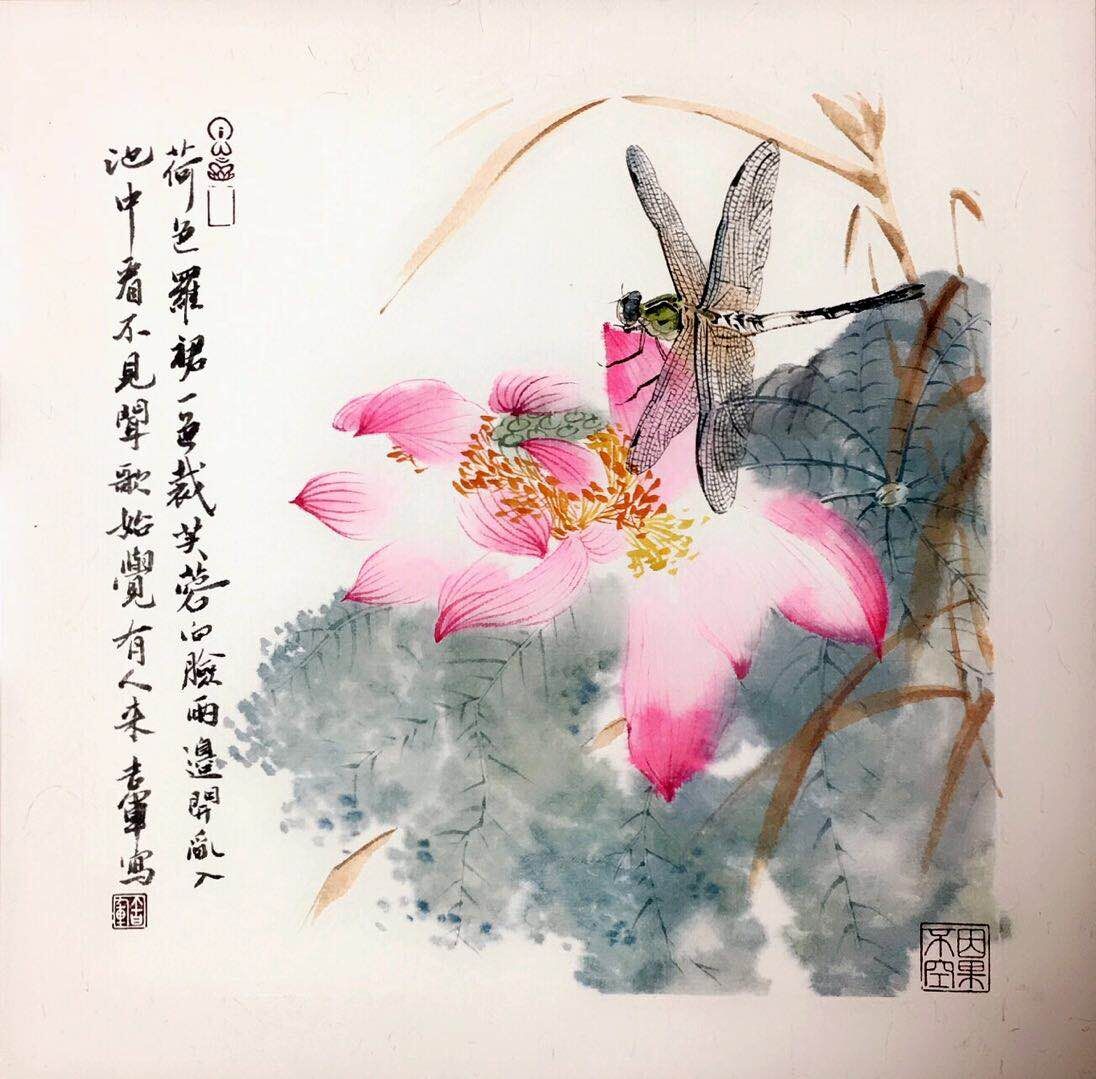 荷色羅裙一色裁芙蓉向臉兩邊開亂入
池中看不見聞歌始覺有人來 吉軍寫
因果不空